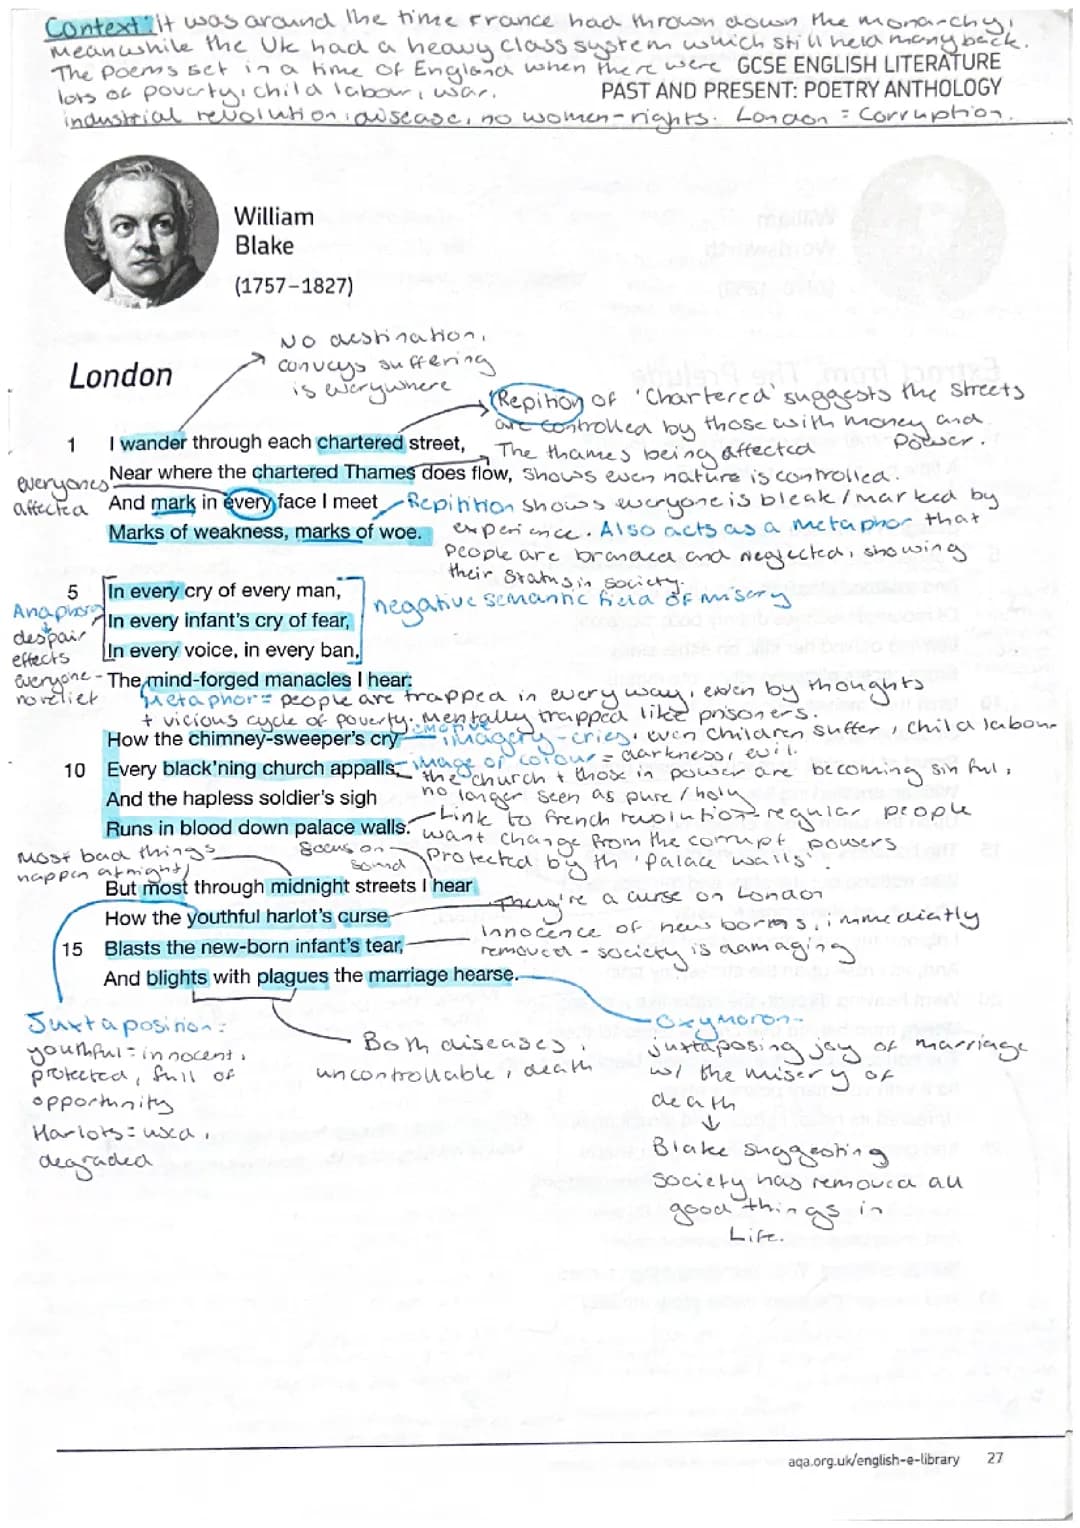 Context: it was around the time France had thrown down the monarchy,
meanwhile the UK had a heavy class system which still held many back.
The poems set in a time of England when there were
GCSE ENGLISH LITERATURE
lots of poverty, child labour, war,
PAST AND PRESENT: POETRY ANTHOLOGY
industrial revolution, disease, no women-rights. London = Corruption.
William
Blake
(1757–1827)
No destination,
conveys suffering
is everywhere
London
Repition of 'Chartered' suggests the streets
are controlled by those with money and
power.
1 I wander through each chartered street,
The thames being affected
Near where the chartered Thames does flow,
shows even nature is controlled.
everyones
affected
And mark in every face I meet
Repitition shows everyone is bleak/marked by
Marks of weakness, marks of woe.
experience. Also acts as a metaphor that
people are branded and neglected, showing
their status in society.
5 In every cry of every man,
negative semantic field of misery
Anaphora
In every infant's cry of fear,
despair
effects
everyone -
no relief
In every voice, in every ban,
The mind-forged manacles I hear:
Metaphor = people are trapped in every way, even by thoughts
+ vicious cycle of poverty. Mentally trapped like prisoners.
How the chimney-sweeper's cry
emotive
imagery - cries, even children suffer, child labour
10 Every black'ning church appalls,
image of colour = darkness, evil.
the church + those in power are becoming sinful,
And the hapless soldier's sigh
no longer seen as pure/holy
Runs in blood down palace walls.
Link to french revolution - regular people
want change from the corrupt powers
protected by th 'palace walls'
Most bad things
happen at night
focus on
sound
But most through midnight streets I hear
How the youthful harlot's curse
They're a curse on London
15 Blasts the new-born infant's tear,
Innocence of new borns, immediatly
removed - society is damaging
And blights with plagues the marriage hearse.
Juxtaposition:
youthful = innocent,
protected, full of
opportunity
Harlots = used,
degraded
Both diseases,
uncontrollable, death
Oxymoron -
juxtaposing joy of marriage
w/ the misery of
death
↓
Blake suggesting
society has removed all
good things in
Life.
aqa.org.uk/english-e-library 27